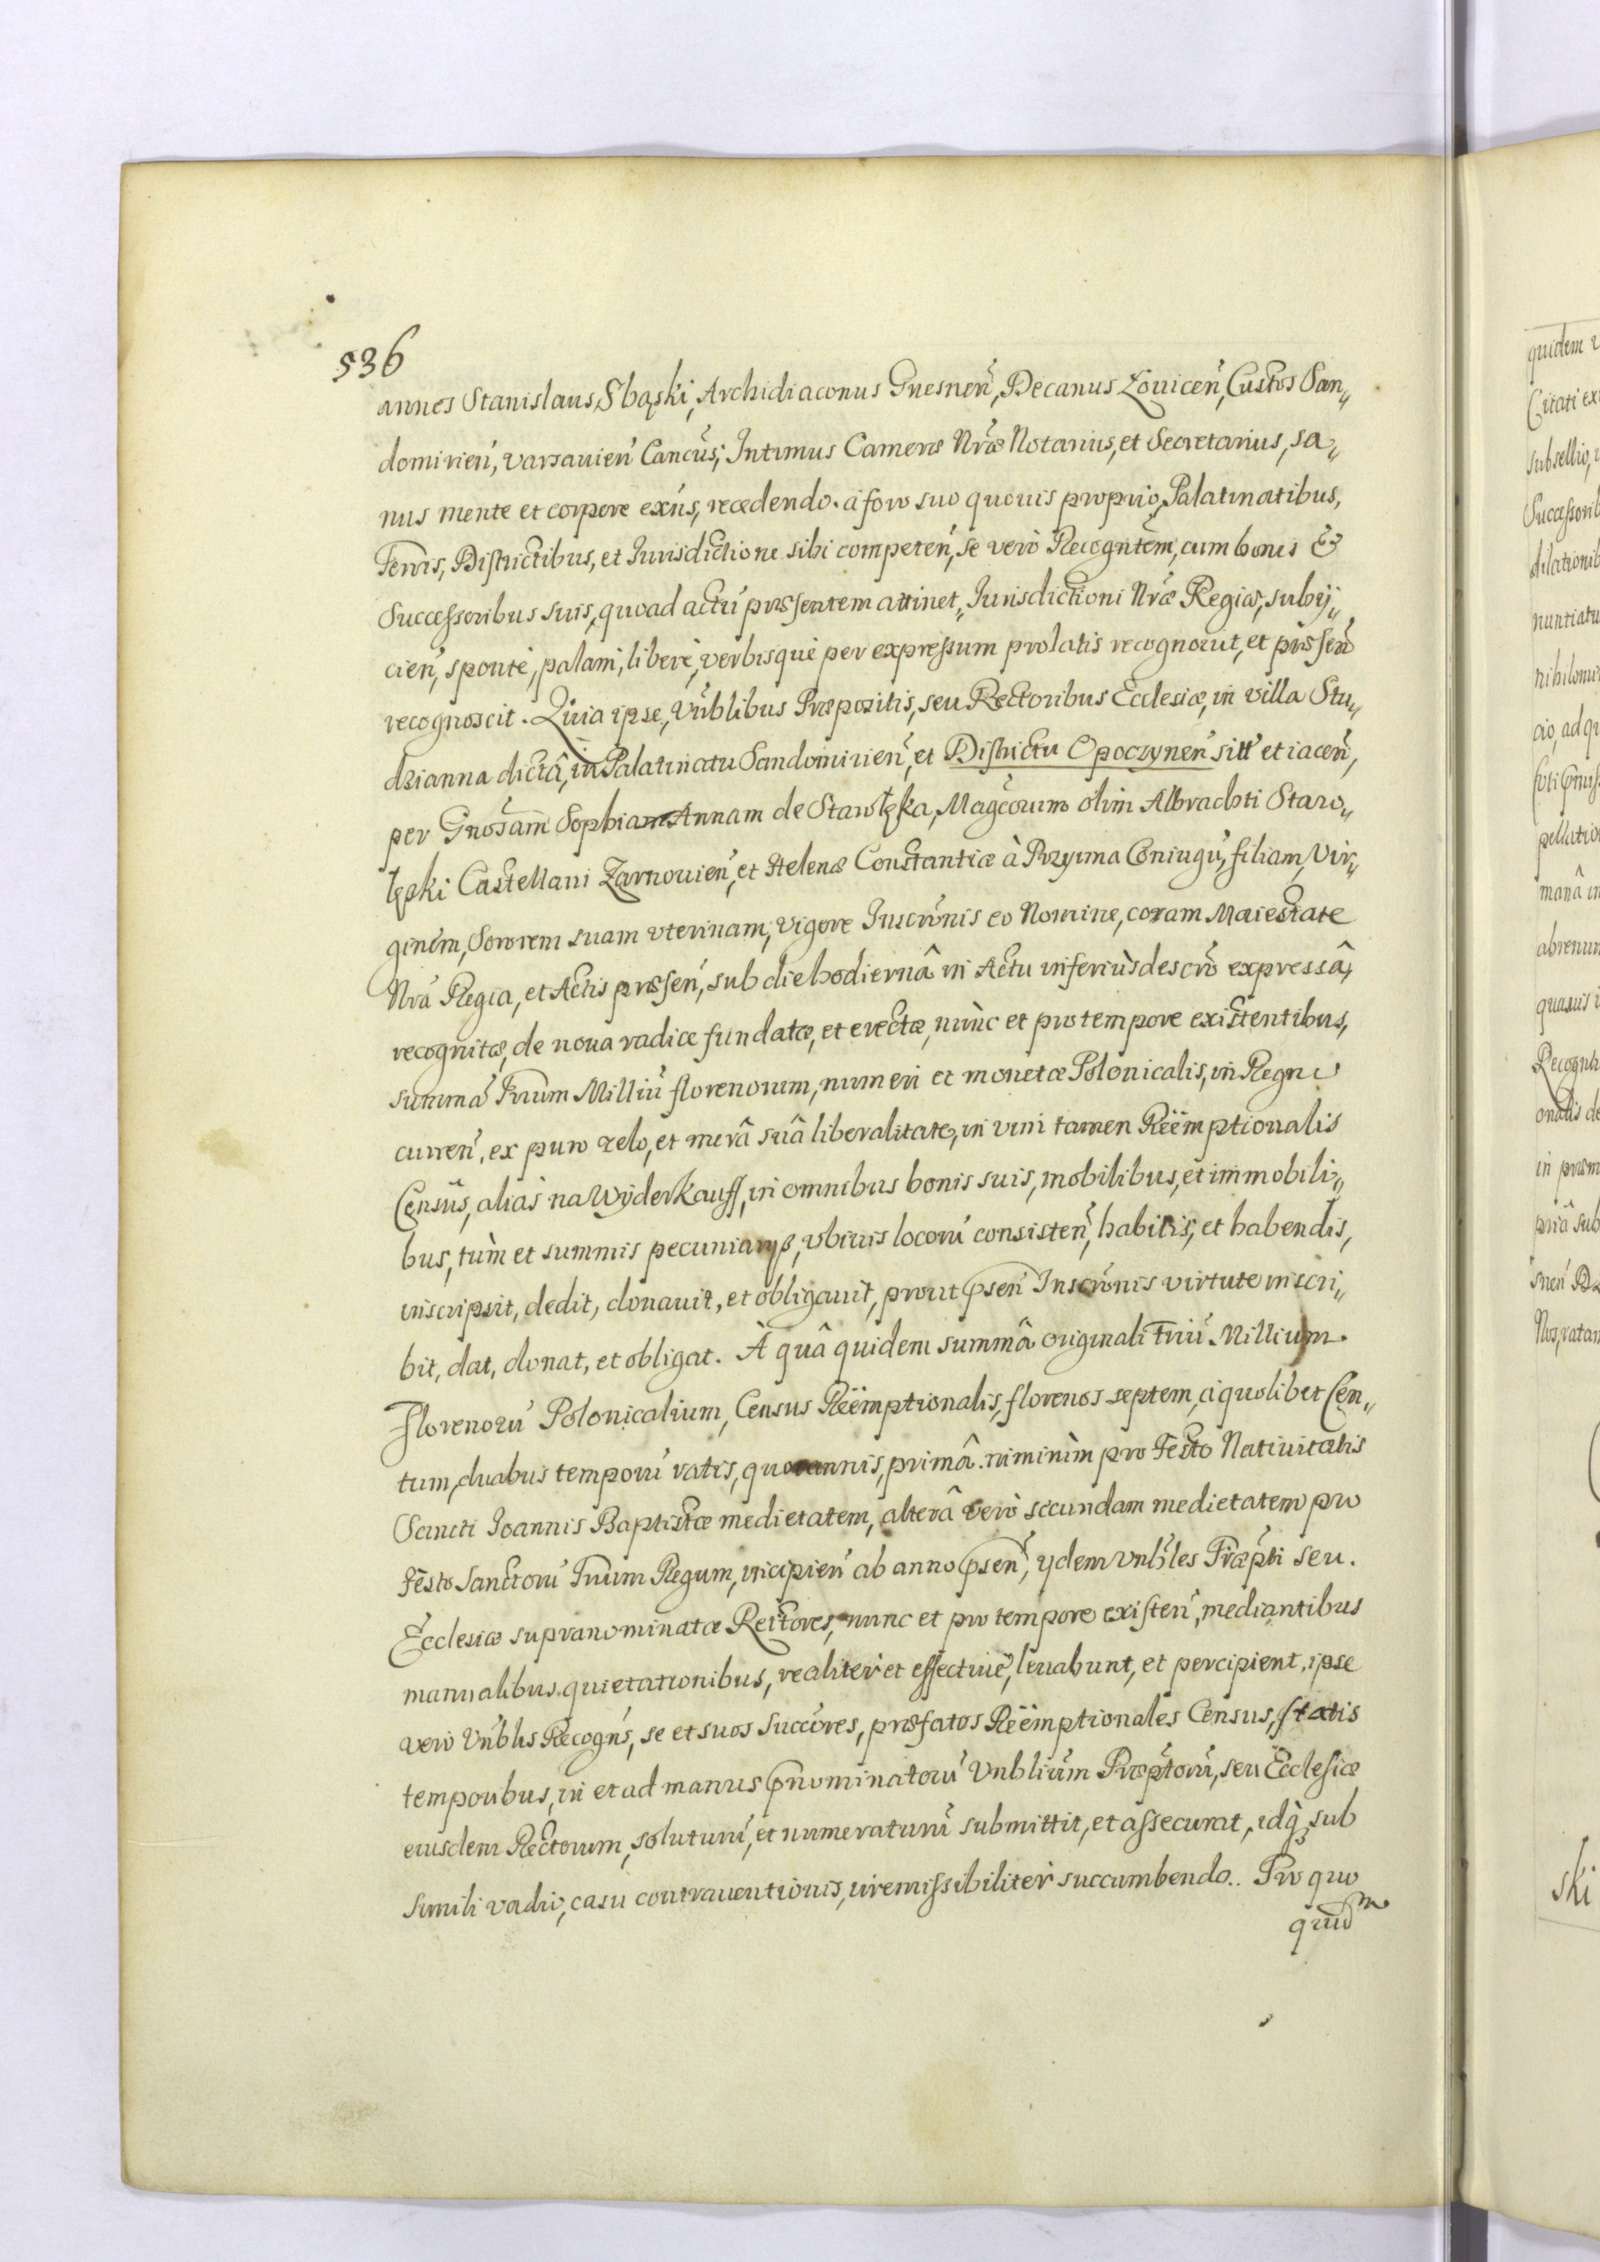 536
annes Stanislaus Sbąski, Archidiaconus Gnesneñ, Decanus Louiceñ, Custos San„
domirień, Varsauień Cancũs, Intimus Cameræ Nrãe Notarius, et Secretarius, sa„
nus mente et corpore exñs, recedendo à foro suo quouis proprio, Palatinatibus,
Terris, Districtibus, et Iurisdictione sibi competeń, se verò Recogntẽm, cum bonis &
Successoribus suis, quoad actũ præsentem attinet, Iurisdictioni Nrãe Regiæ, subij„
cień, sponte, palam, liberè, verbisque per expressum prolatis recognouit, et præseñ
recognoscit. Quia ipse, Vñblibus Præpositis, seu Rectoribus Ecclesiæ, in villa Stu„
dzianna dictâ, in Palatinatu Sandomirień, et Districtu Opoczyneń sitt et iaceñ,
per Gnosam̃ Sophiam Annam de Starołęka, Magcõrum olim Albrachti Staro„
łęski Castellani Zarnouień, et Helenæ Constantiæ à Przyima Coniugũ, filiam, Vir„
ginem, Sororem suam vterinam, vigore Inscrõnis eo Nomine, coram Maiestate
Nrã Regia, et Actis præseń, sub die hodiernâ in Actu inferiùs descrõ expressâ,
recognitæ, de noua radice fundatæ, et erectæ, nùnc et pro tempore existentibus,
summã Trium Milliũ florenorum, numeri et monetæ Polonicalis, in Regno
curreń, ex puro zelo, et merâ suâ liberalitate, in vim tamen Reëmptionalis
Censũs, aliàs na Wyderkauff, in omnibus bonis suis, mobilibus, et immobili„
bus, tùm et summis pecuniarijs, vbiuis locorũ consisteń, habitis, et habendis,
inscripsit, dedit, donauit, et obligauit, prout pseñ Inscrõnis virtute inscri„
bit, dat, donat, et obligat. À quâ quidem summâ originali Triũ Millium
Florenorũ Polonicalium, Census Reëmptionalis, florenos septem, à quolibet Cen„
tum, duabus temporũ ratis, quotannis, primâ nimirùm pro Festo Natiuitatis
Sancti Ioannis Baptistæ medietatem, alterâ verò secundam medietatem pro
Festo Sanctorũ Trium Regum, incipień ab anno pseñ, ijdem Vnbles Præpti seu
Ecclesiæ supranominatæ Rectores, nunc et pro tempore existeń, mediantibus
manualibus quietationibus, realitèr et effectiuè, leuabunt, et percipient, ipse
verò Vñblis Recogñs, se et suos Succõres, præfatos Reëmptionales Census, statis
temporibus, in et ad manus pñominatorũ Vnbliũm Præptorũ, seu Ecclesiæ
eiusdem Rectorum, soluturũ, et numeraturũ submittit, et assecurat, idq₃ sub
simili vadio, casu contrauentionis, irremissibilitèr succumbendo. Pro quo
quidm